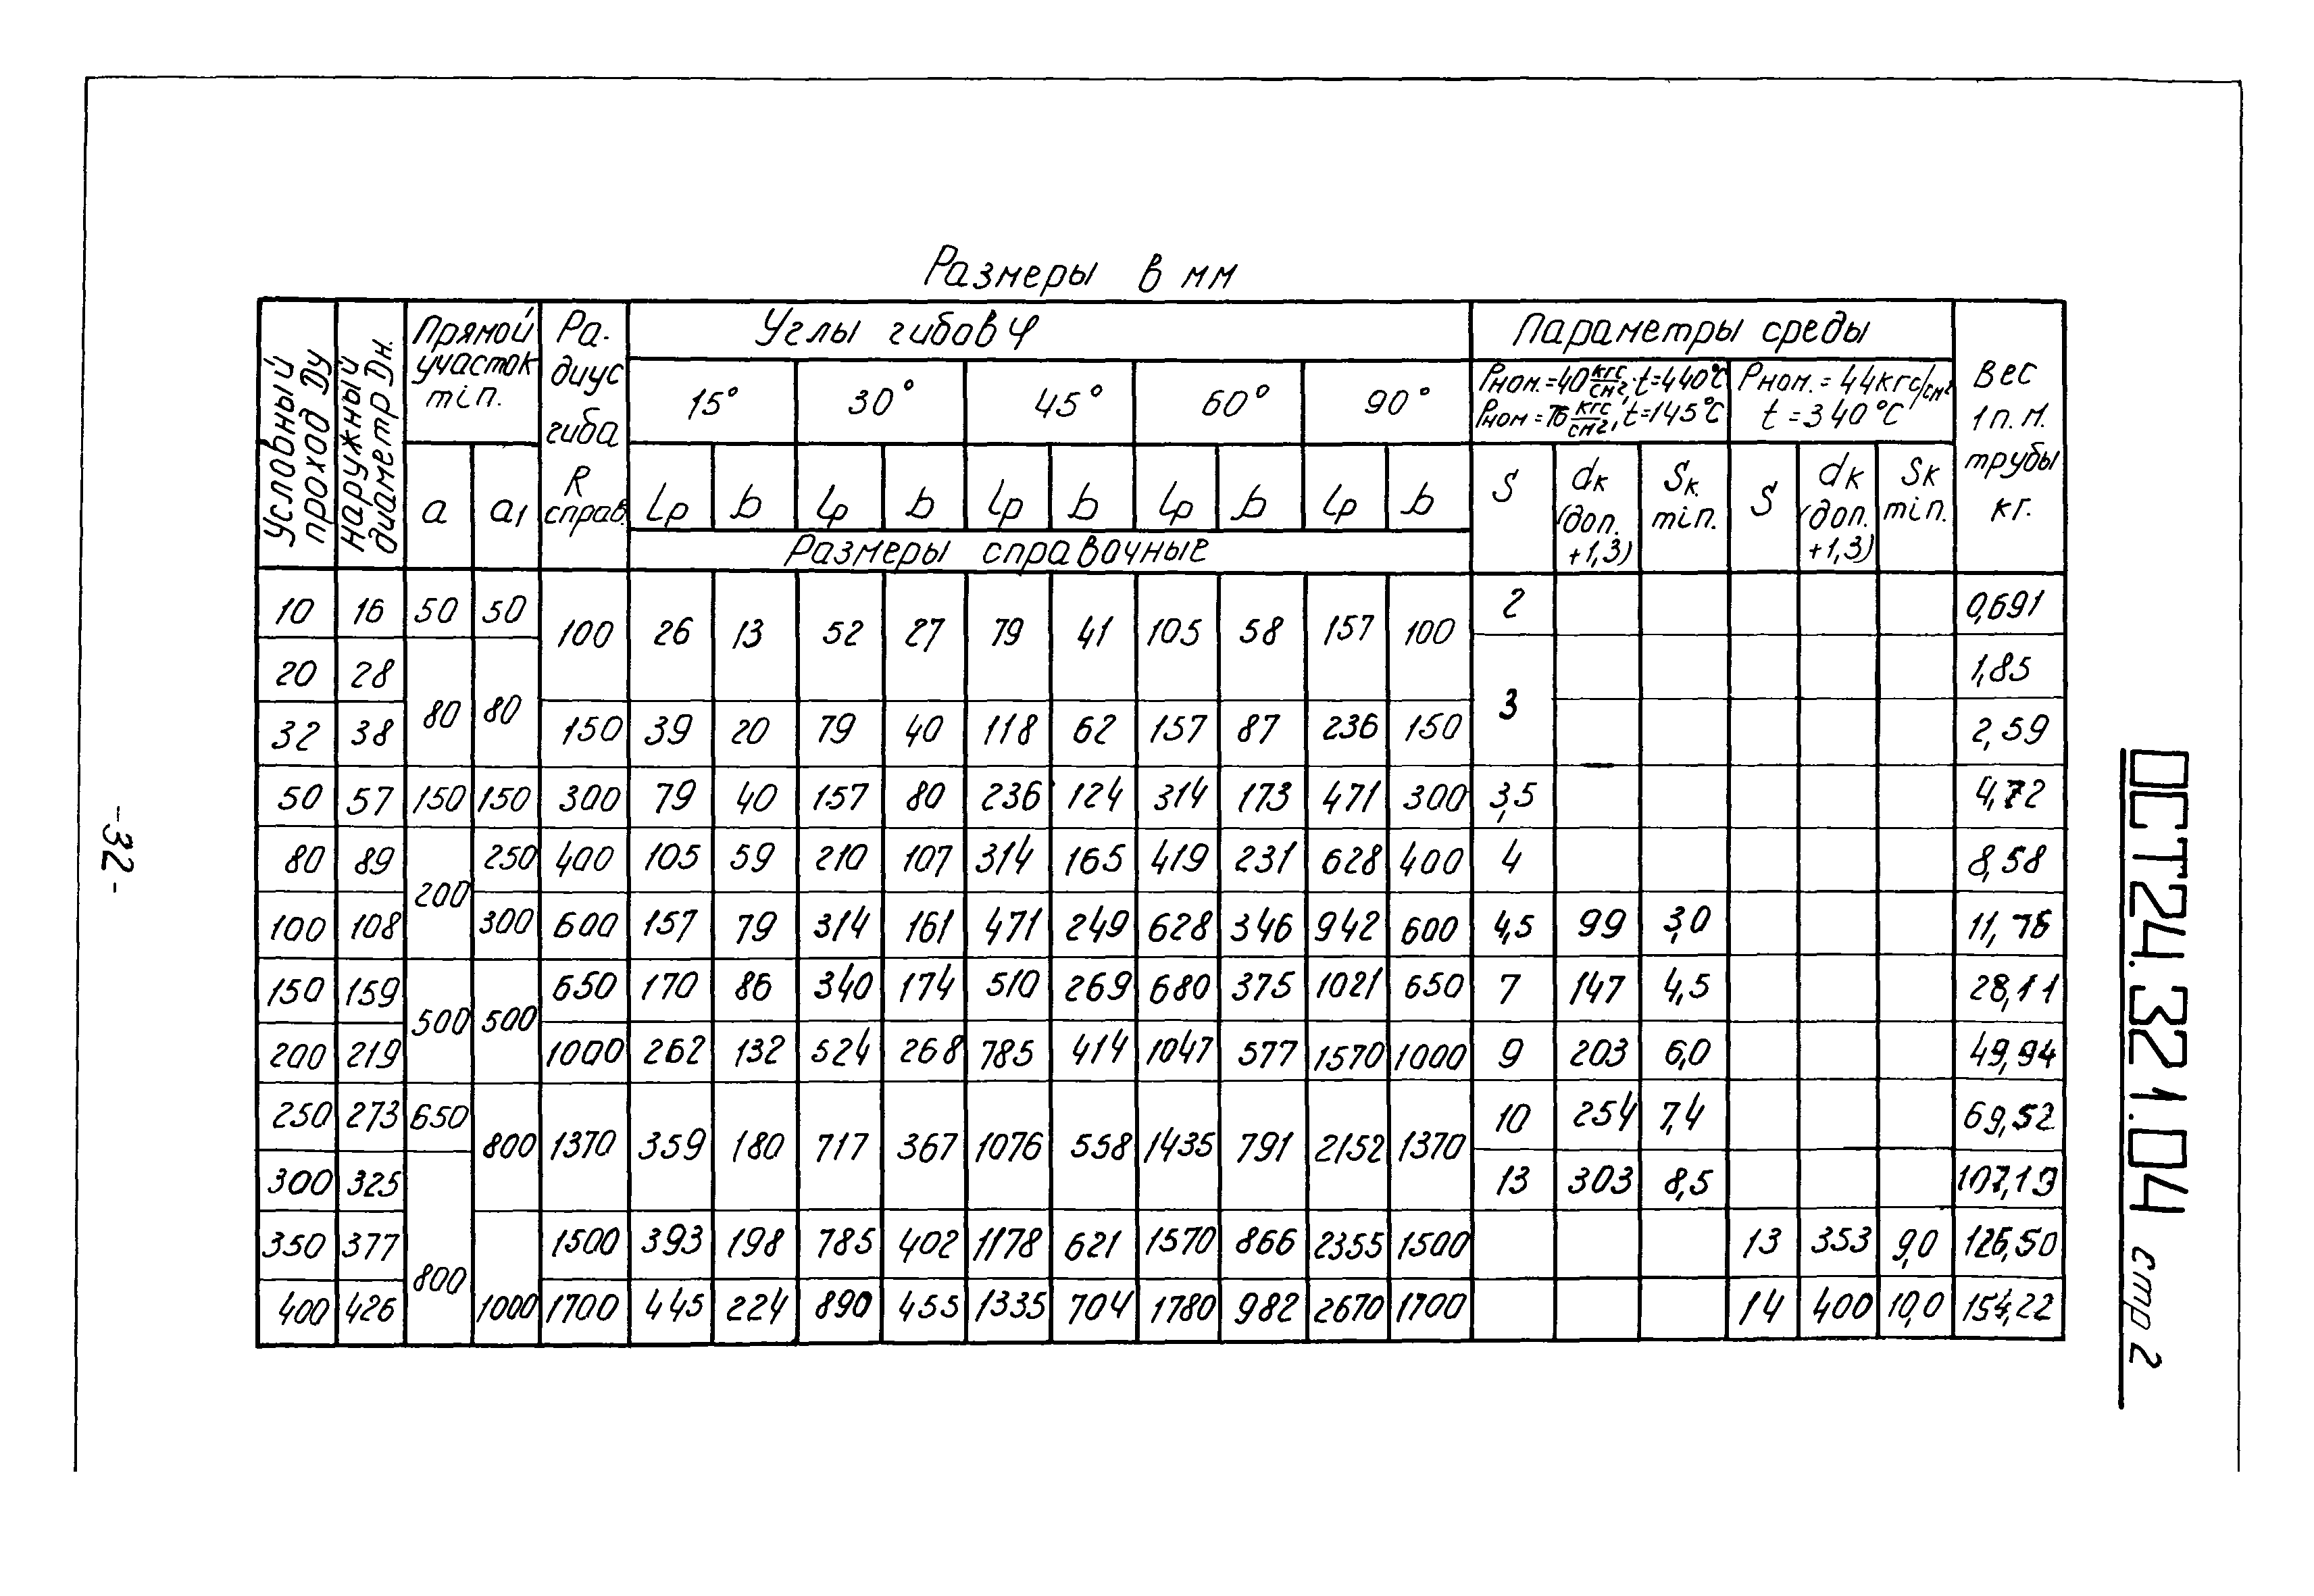 Размеры в мм
Условный проход Dу | Наружный диаметр Dн. | Прямой участок min. | Радиус гиба R справ. | Углы гибов φ | Параметры среды | Вес 1 п.м. трубы кг.
15° | 30° | 45° | 60° | 90° | Pном.=40 кгс/см², t=440°C | Pном.=44 кгс/см²
Pном=76 кгс/см², t=145°C | t=340°C
a | a1 | Lp | b | Lp | b | Lp | b | Lp | b | Lp | b | S | dк (доп. +1,3) | Sк. min. | S | dк (доп. +1,3) | Sк min.
Размеры справочные
10 | 16 | 50 | 50 | 100 | 26 | 13 | 52 | 27 | 79 | 41 | 105 | 58 | 157 | 100 | 2 | 0,691
20 | 28 | 80 | 80 | 3 | 1,85
32 | 38 | 150 | 39 | 20 | 79 | 40 | 118 | 62 | 157 | 87 | 236 | 150 | 2,59
50 | 57 | 150 | 150 | 300 | 79 | 40 | 157 | 80 | 236 | 124 | 314 | 173 | 471 | 300 | 3,5 | 4,72
80 | 89 | 200 | 250 | 400 | 105 | 59 | 210 | 107 | 314 | 165 | 419 | 231 | 628 | 400 | 4 | 8,58
100 | 108 | 300 | 600 | 157 | 79 | 314 | 161 | 471 | 249 | 628 | 346 | 942 | 600 | 4,5 | 99 | 3,0 | 11,76
150 | 159 | 500 | 500 | 650 | 170 | 86 | 340 | 174 | 510 | 269 | 680 | 375 | 1021 | 650 | 7 | 147 | 4,5 | 28,11
200 | 219 | 1000 | 262 | 132 | 524 | 268 | 785 | 414 | 1047 | 577 | 1570 | 1000 | 9 | 203 | 6,0 | 49,94
250 | 273 | 650 | 800 | 1370 | 359 | 180 | 717 | 367 | 1076 | 558 | 1435 | 791 | 2152 | 1370 | 10 | 254 | 7,4 | 69,52
300 | 325 | 800 | 13 | 303 | 8,5 | 107,19
350 | 377 | 1000 | 1500 | 393 | 198 | 785 | 402 | 1178 | 621 | 1570 | 866 | 2355 | 1500 | 13 | 353 | 9,0 | 126,50
400 | 426 | 1700 | 445 | 224 | 890 | 455 | 1335 | 704 | 1780 | 982 | 2670 | 1700 | 14 | 400 | 10,0 | 154,22
-32-
ОСТ24.321.04 стр 2